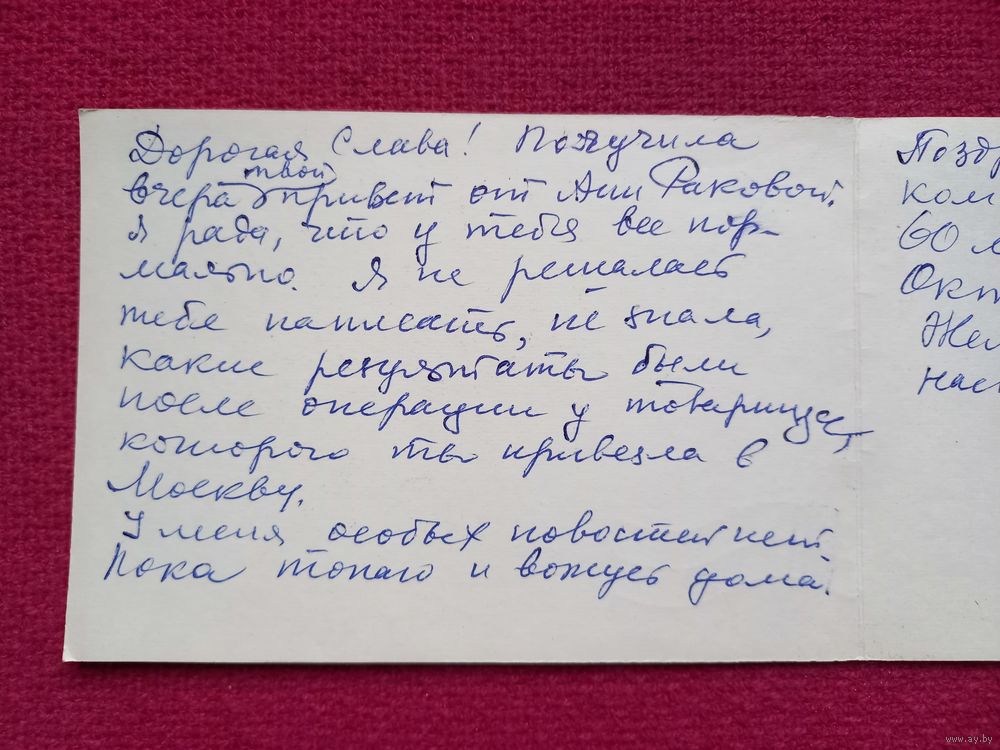 Дорогая Слава! Получила
вчера твой привет от Ани Раковой.
Я рада, что у тебя все нор-
мально. Я не решалась
тебе написать, не знала,
какие результаты были
после операции у товарища,
которого ты привезла в
Москву.
У меня особых новостей нет.
Пока топаю и вожусь дома.
Позд
ком
60 л
Окт
Жел
нас
www.ay.by